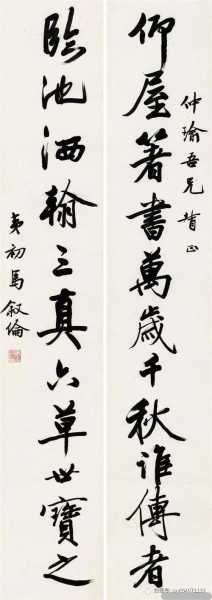 仲瑜吾兄省正
仰屋著書萬歲千秋誰傳者
臨池洒翰三真六草世寶之
夷初馬叙倫